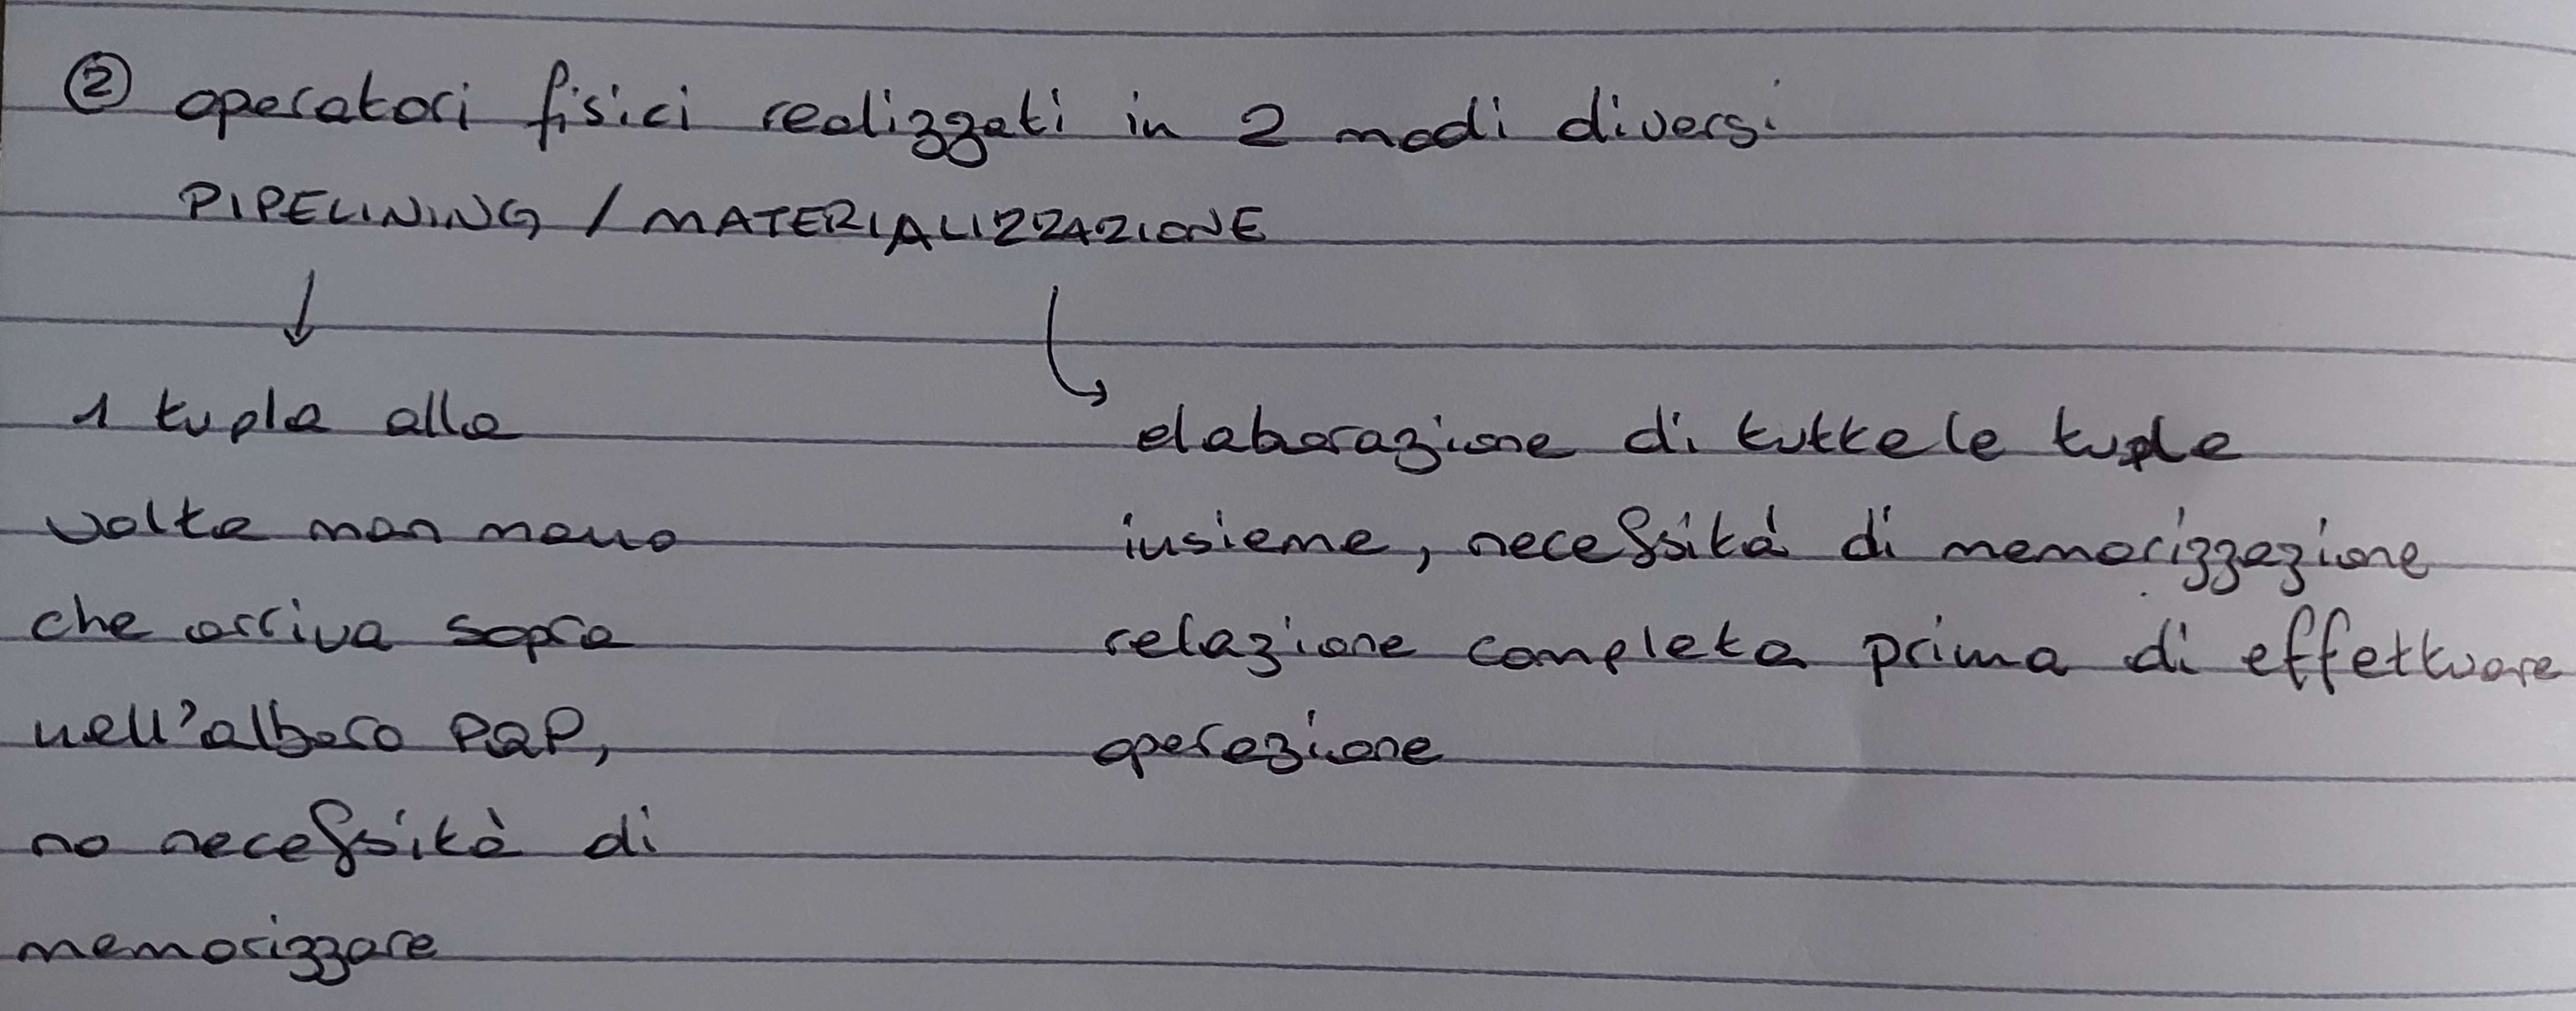 ② operatori fisici realizzati in 2 modi diversi
PIPELINING / MATERIALIZZAZIONE
↓
1 tupla alla
volta man mano
che arriva sopra
nell'albero PQP,
no necessità di
memorizzare
elaborazione di tutte le tuple
insieme, necessità di memorizzazione
relazione completa prima di effettuare
operazione